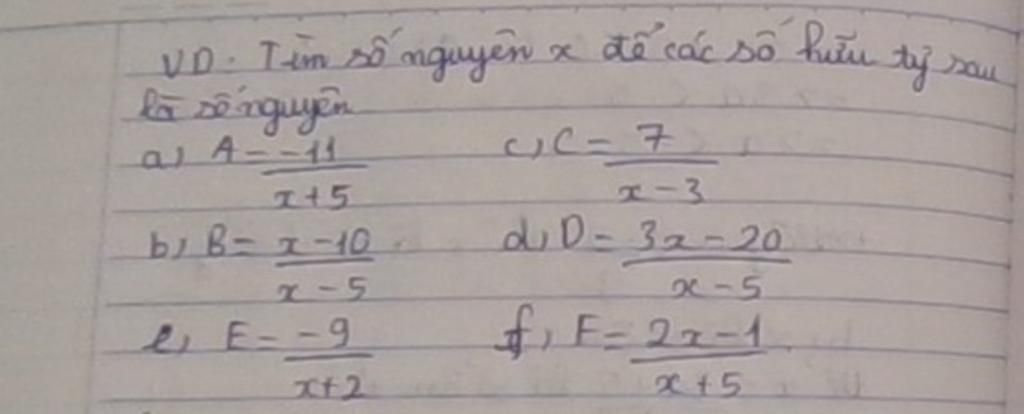 VD: Tìm số nguyên x để các số hữu tỷ sau
là số nguyên
a, A = -11/(x+5) c, C = 7/(x-3)
b, B = (x-10)/(x-5) d, D = (3x-20)/(x-5)
e, E = -9/(x+2) f, F = (2x-1)/(x+5)